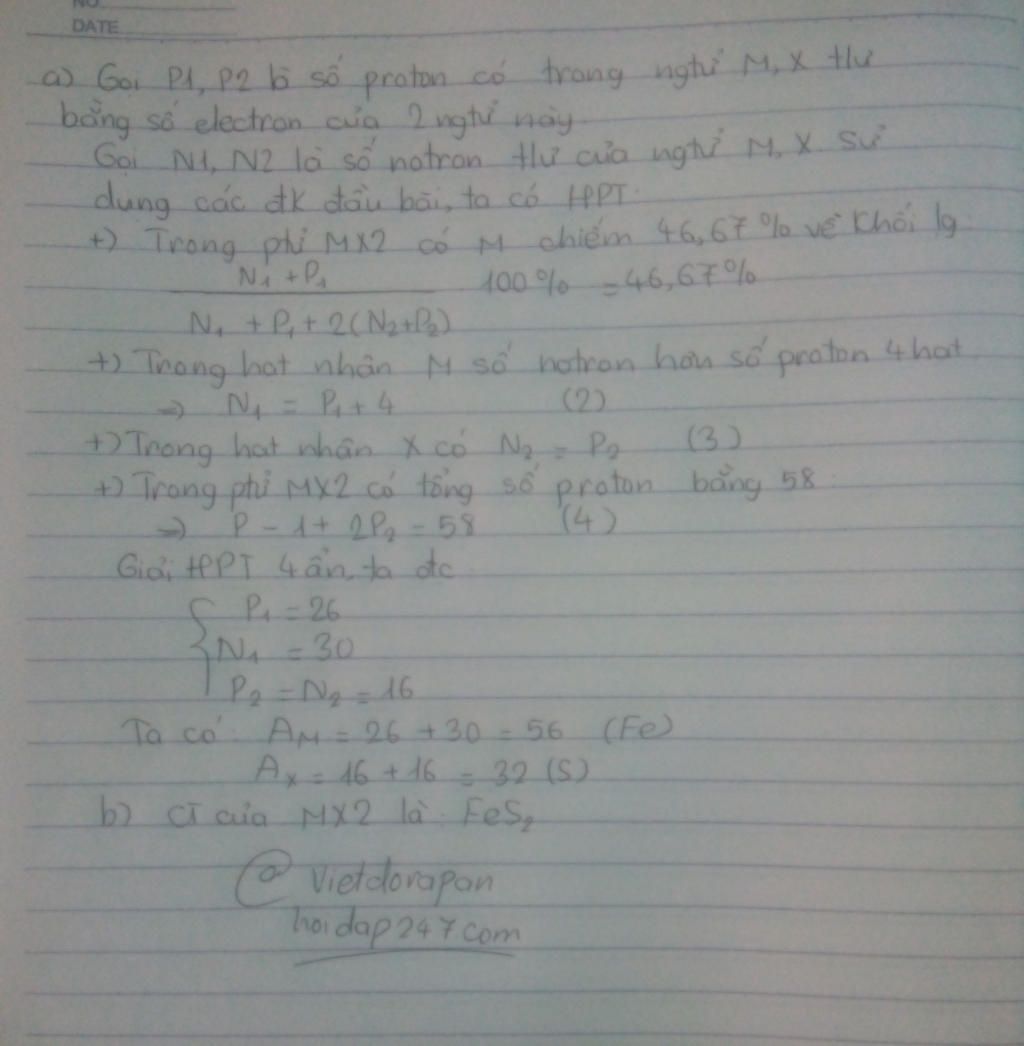 NO.
DATE
a) Gọi P1, P2 là số proton có trong ngtử M, X thư
bằng số electron của 2 ngtử này
Gọi N1, N2 là số notron thư của ngtử M, X sử
dụng các đk đầu bài, ta có HPPT:
+) Trong phtử MX2 có M chiếm 46,67% về khối lg
N₁ + P₁ / N₁ + P₁ + 2(N₂+P₂) 100% = 46,67%
+) Trong hạt nhân M số notron hơn số proton 4 hạt
=> N₁ = P₁ + 4 (2)
+) Trong hạt nhân X có N₂ = P₂ (3)
+) Trong phtử MX2 có tổng số proton bằng 58
=> P - 1 + 2P₂ = 58 (4)
Giải HPPT 4 ẩn, ta đc
{ P₁ = 26
N₁ = 30
P₂ = N₂ = 16
Ta có: A_M = 26 + 30 = 56 (Fe)
A_X = 16 + 16 = 32 (S)
b) CT của MX2 là FeS₂
@ Vietdorapan
hoidap247com